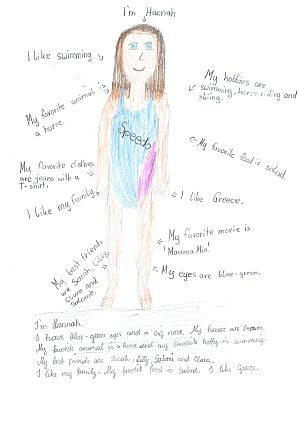 I'm Hannah
I like swimming
My hobbies are
swimming, horse riding and
skiing.
My favorite animal is
a horse.
Speedo
My favorite food is salad.
My favorite clothes
are jeans with a
T-shirt.
I like my family
I like Greece.
My favorite movie is
'Mamma Mia'
My best friends
are Sarah, Lilly,
Clara and
Salome.
My eyes are blue-green.
I'm Hannah.
I have blue-green eyes and a big nose. My haare are brown.
My favorite animal is a horse and my favorite hobby is swimming.
My best friends are Sarah, Lilly, and Clara.
I like my family. My favorit food is Salad. I like Greece.